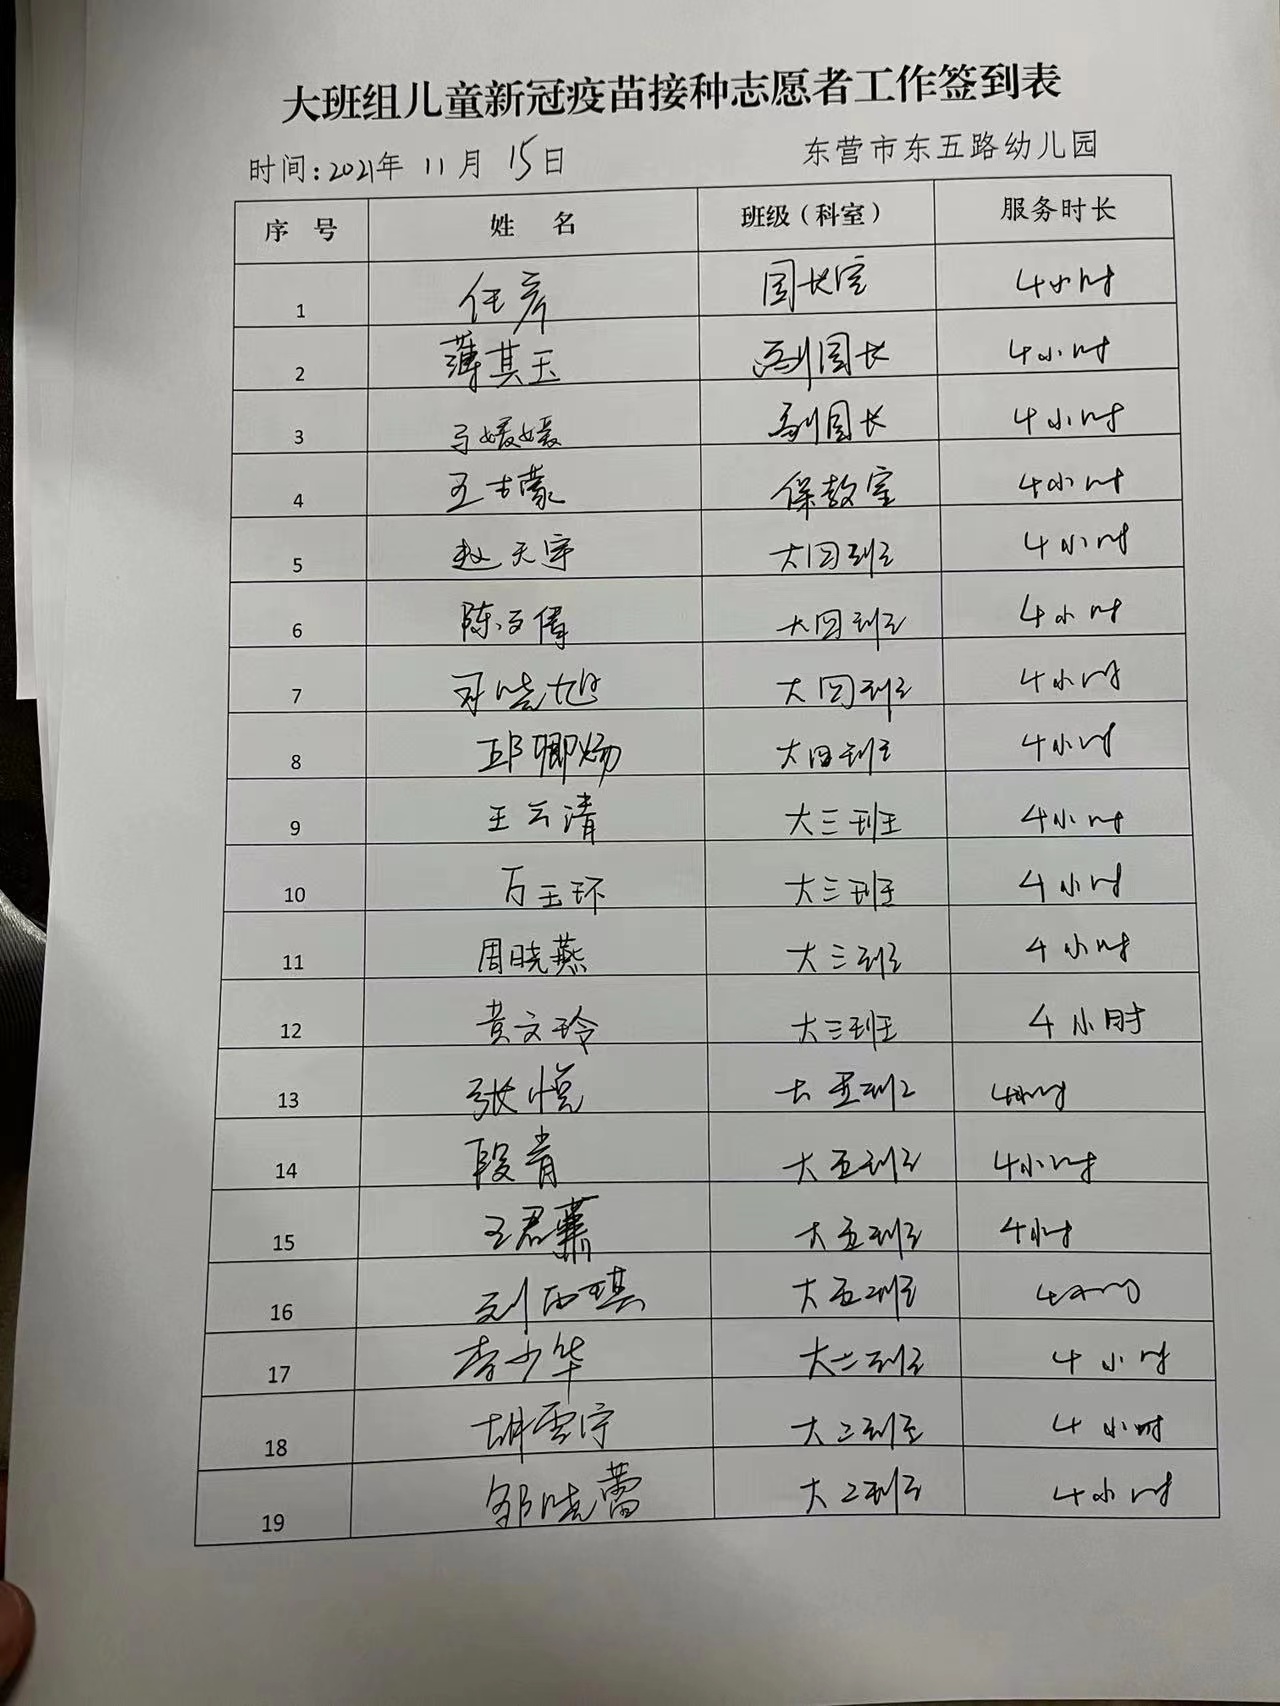 大班组儿童新冠疫苗接种志愿者工作签到表
时间:2021年 11月 15日 东营市东五路幼儿园
序 号 姓 名 班级(科室) 服务时长
1 任彦 园长室 4小时
2 薄其玉 副园长 4小时
3 马媛媛 副园长 4小时
4 王士蒙 保教室 4小时
5 赵天宇 大四班 4小时
6 陈文倩 大四班 4小时
7 晓旭 大四班 4小时
8 邱卿炀 大四班 4小时
9 王云清 大三班 4小时
10 万玉环 大三班 4小时
11 周晓燕 大三班 4小时
12 黄文玲 大三班 4小时
13 张悦 大五班 4小时
14 段青 大五班 4小时
15 王君 大五班 4小时
16 刘雨琪 大五班 4小时
17 李少华 大二班 4小时
18 胡雪宁 大二班 4小时
19 邹晓蕾 大二班 4小时